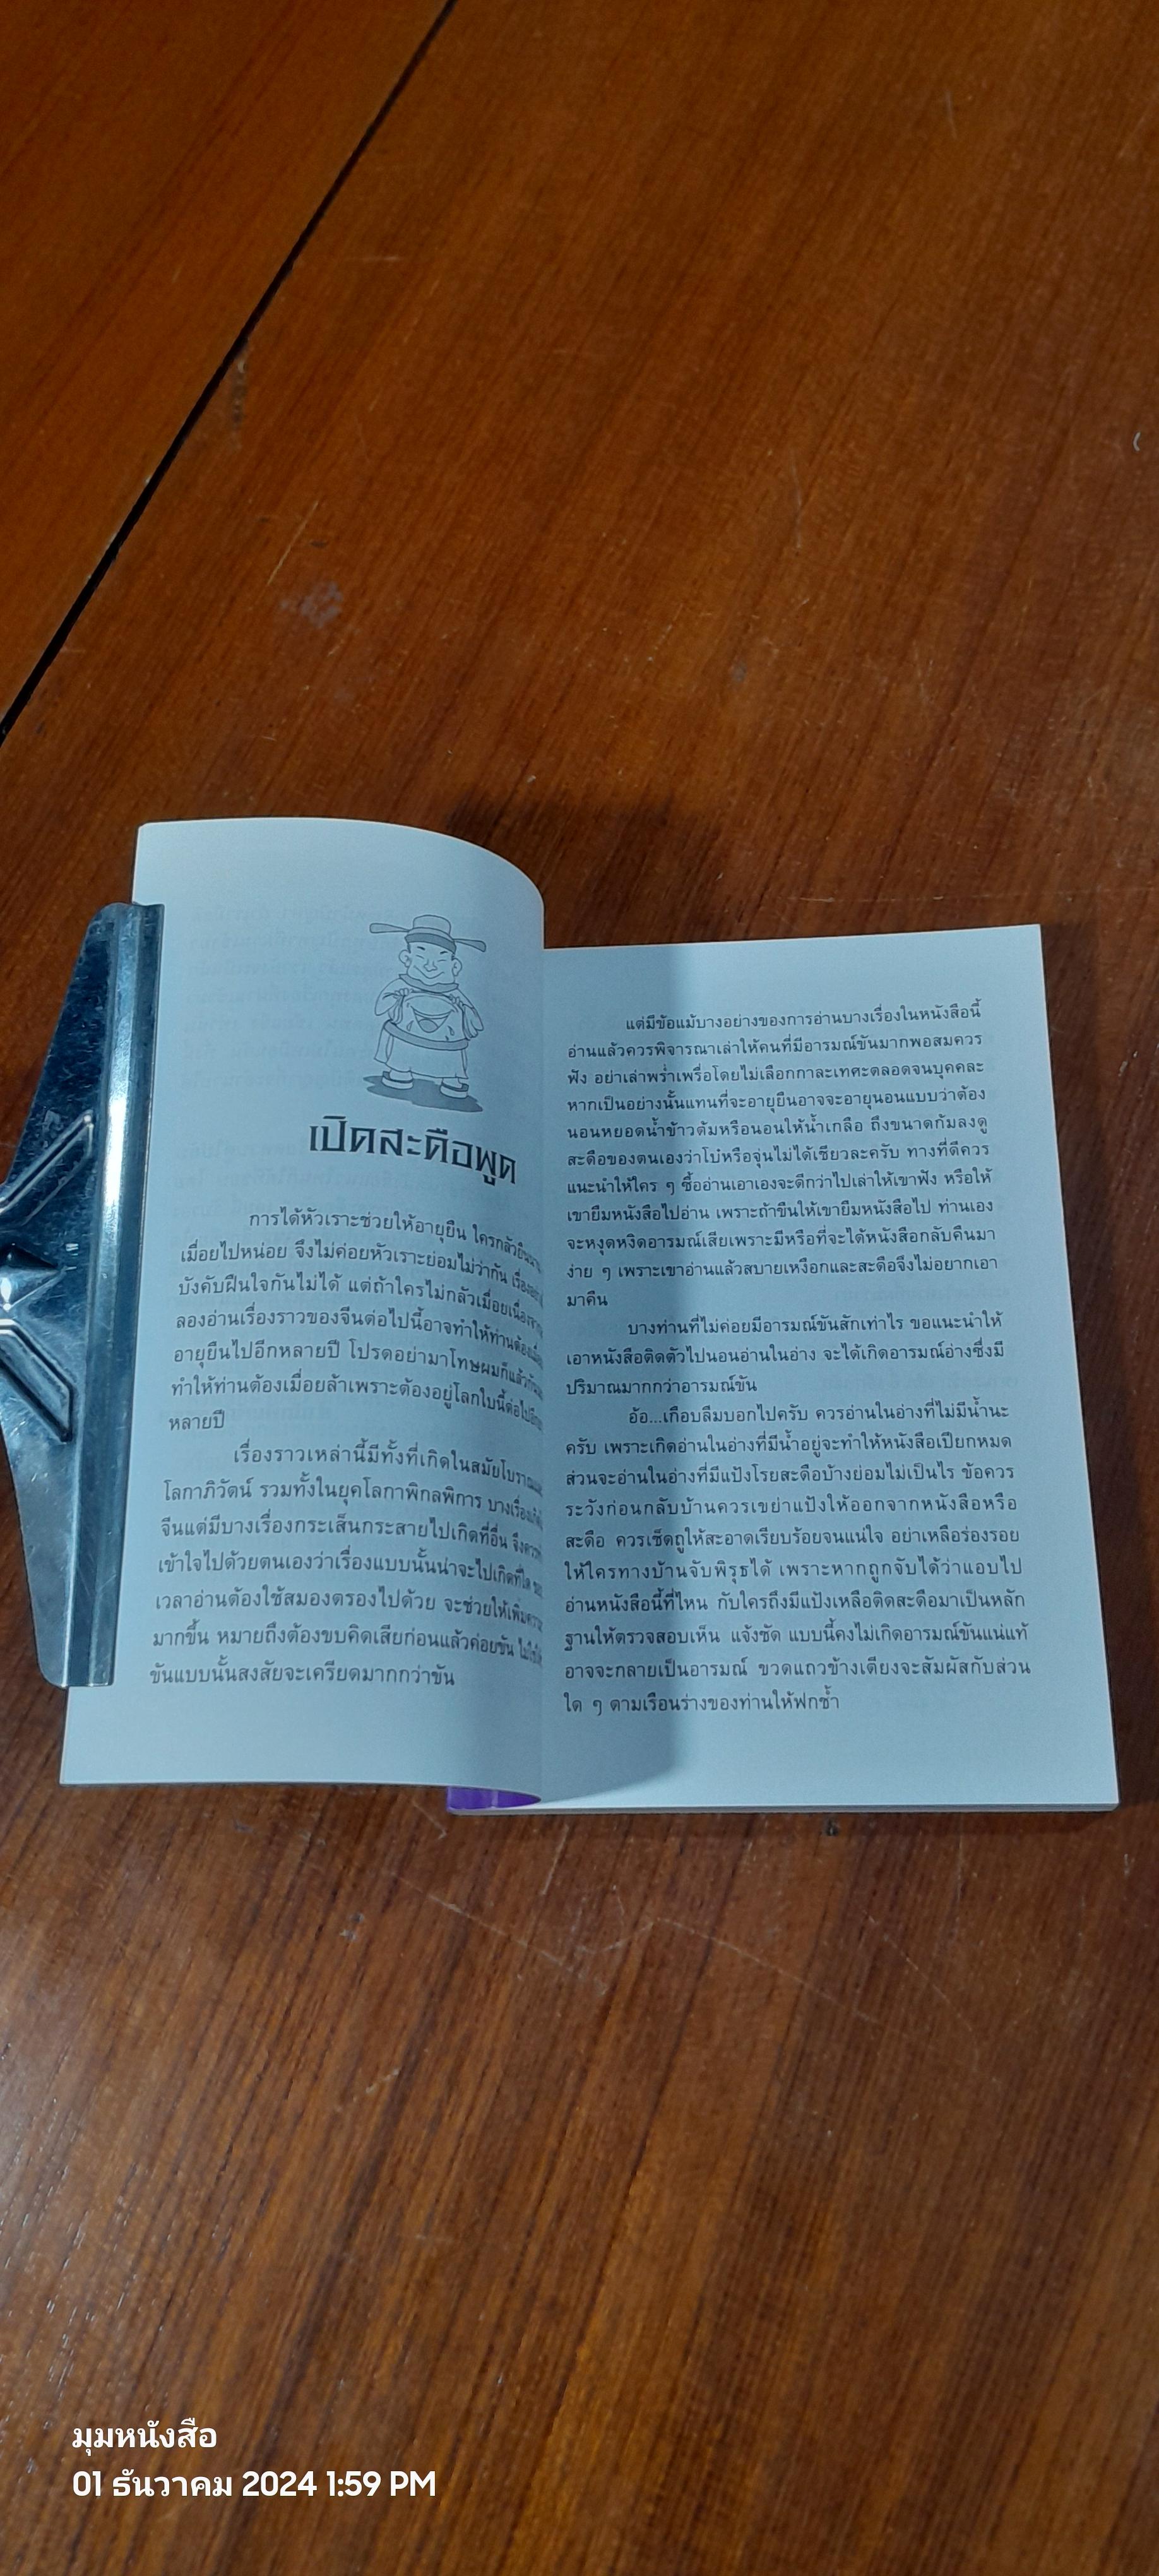 เปิดสะดือพูด
การได้หัวเราะช่วยให้อายุยืน ใครกลัวยืนนาน
เมื่อยไปหน่อย จึงไม่ค่อยหัวเราะย่อมไม่ว่ากัน
บังคับฝืนใจกันไม่ได้ แต่ถ้าใครไม่กลัวเมื่อย
ลองอ่านเรื่องราวของจีนต่อไปนี้อาจทำให้ท่านต้อง
อายุยืนไปอีกหลายปี โปรดอย่ามาโทษผมก็แล้วกัน
ทำให้ท่านต้องเมื่อยล้าเพราะต้องอยู่โลกใบนี้ต่อไปอีก
หลายปี
เรื่องราวเหล่านี้มีทั้งที่เกิดในสมัยโบราณ
โลกาภิวัตน์ รวมทั้งในยุคโลกาพิกลพิการ บางเรื่อง
จีนแต่มีบางเรื่องกระเส็นกระสายไปเกิดที่อื่น
เข้าใจไปด้วยตนเองว่าเรื่องแบบนั้นน่าจะไปเกิดที่ใด
เวลาอ่านต้องใช้สมองตรองไปด้วย จะช่วยให้เพิ่ม
มากขึ้น หมายถึงต้องขบคิดเสียก่อนแล้วค่อยขัน
ขันแบบนั้นสงสัยจะเครียดมากกว่าขัน
แต่มีข้อแม้บางอย่างของการอ่านบางเรื่องในหนังสือนี้
อ่านแล้วควรพิจารณาเล่าให้คนที่มีอารมณ์ขันมากพอสมควร
ฟัง อย่าเล่าพร่ำเพรื่อโดยไม่เลือกกาละเทศะตลอดจนบุคคละ
หากเป็นอย่างนั้นแทนที่จะอายุยืนอาจจะอายุนอนแบบว่าต้อง
นอนหยอดน้ำข้าวต้มหรือนอนให้น้ำเกลือ ถึงขนาดก้มลงดู
สะดือของตนเองว่าโบ๋หรือจุ่นไม่ได้เชียวละครับ ทางที่ดีควร
แนะนำให้ใคร ๆ ซื้ออ่านเอาเองจะดีกว่าไปเล่าให้เขาฟัง หรือให้
เขายืมหนังสือไปอ่าน เพราะถ้าขืนให้เขายืมหนังสือไป ท่านเอง
จะหงุดหงิดอารมณ์เสียเพราะมีหรือที่จะได้หนังสือกลับคืนมา
ง่าย ๆ เพราะเขาอ่านแล้วสบายเหงือกและสะดือจึงไม่อยากเอา
มาคืน
บางท่านที่ไม่ค่อยมีอารมณ์ขันสักเท่าไร ขอแนะนำให้
เอาหนังสือติดตัวไปนอนอ่านในอ่าง จะได้เกิดอารมณ์อ่างซึ่งมี
ปริมาณมากกว่าอารมณ์ขัน
อ้อ...เกือบลืมบอกไปครับ ควรอ่านในอ่างที่ไม่มีน้ำนะ
ครับ เพราะเกิดอ่านในอ่างที่มีน้ำอยู่จะทำให้หนังสือเปียกหมด
ส่วนจะอ่านในอ่างที่มีแป้งโรยสะดือบ้างย่อมไม่เป็นไร ข้อควร
ระวังก่อนกลับบ้านควรเขย่าแป้งให้ออกจากหนังสือหรือ
สะดือ ควรเช็ดถูให้สะอาดเรียบร้อยจนแน่ใจ อย่าเหลือร่องรอย
ให้ใครทางบ้านจับพิรุธได้ เพราะหากถูกจับได้ว่าแอบไป
อ่านหนังสือนี้ที่ไหน กับใครถึงมีแป้งเหลือติดสะดือมาเป็นหลัก
ฐานให้ตรวจสอบเห็น แจ้งชัด แบบนี้คงไม่เกิดอารมณ์ขันแน่แท้
อาจจะกลายเป็นอารมณ์ ขวดแถวข้างเตียงจะสัมผัสกับส่วน
ใด ๆ ตามเรือนร่างของท่านให้ฟกช้ำ
มุมหนังสือ
01 ธันวาคม 2024 1:59 PM